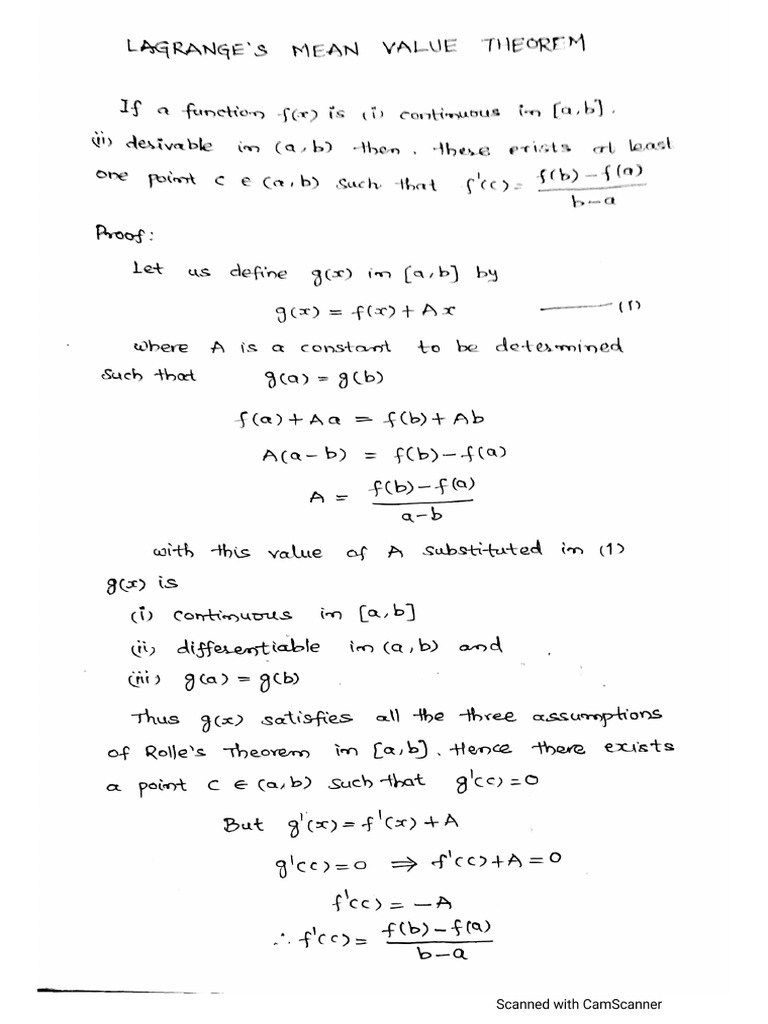 LAGRANGE'S MEAN VALUE THEOREM
If a function f(x) is (i) continuous in [a,b].
(ii) derivable in (a,b) then, there exists at least
one point c ∈ (a,b) such that f'(c) = f(b)-f(a) / b-a
Proof:
Let us define g(x) in [a,b] by
g(x) = f(x) + Ax ——— (1)
where A is a constant to be determined
such that g(a) = g(b)
f(a) + Aa = f(b) + Ab
A(a-b) = f(b)-f(a)
A = f(b)-f(a) / a-b
with this value of A substituted in (1)
g(x) is
(i) continuous in [a,b]
(ii) differentiable in (a,b) and
(iii) g(a) = g(b)
Thus g(x) satisfies all the three assumptions
of Rolle's Theorem in [a,b]. Hence there exists
a point c ∈ (a,b) such that g'(c) = 0
But g'(x) = f'(x) + A
g'(c) = 0 ⇒ f'(c) + A = 0
f'(c) = -A
∴ f'(c) = f(b)-f(a) / b-a
Scanned with CamScanner